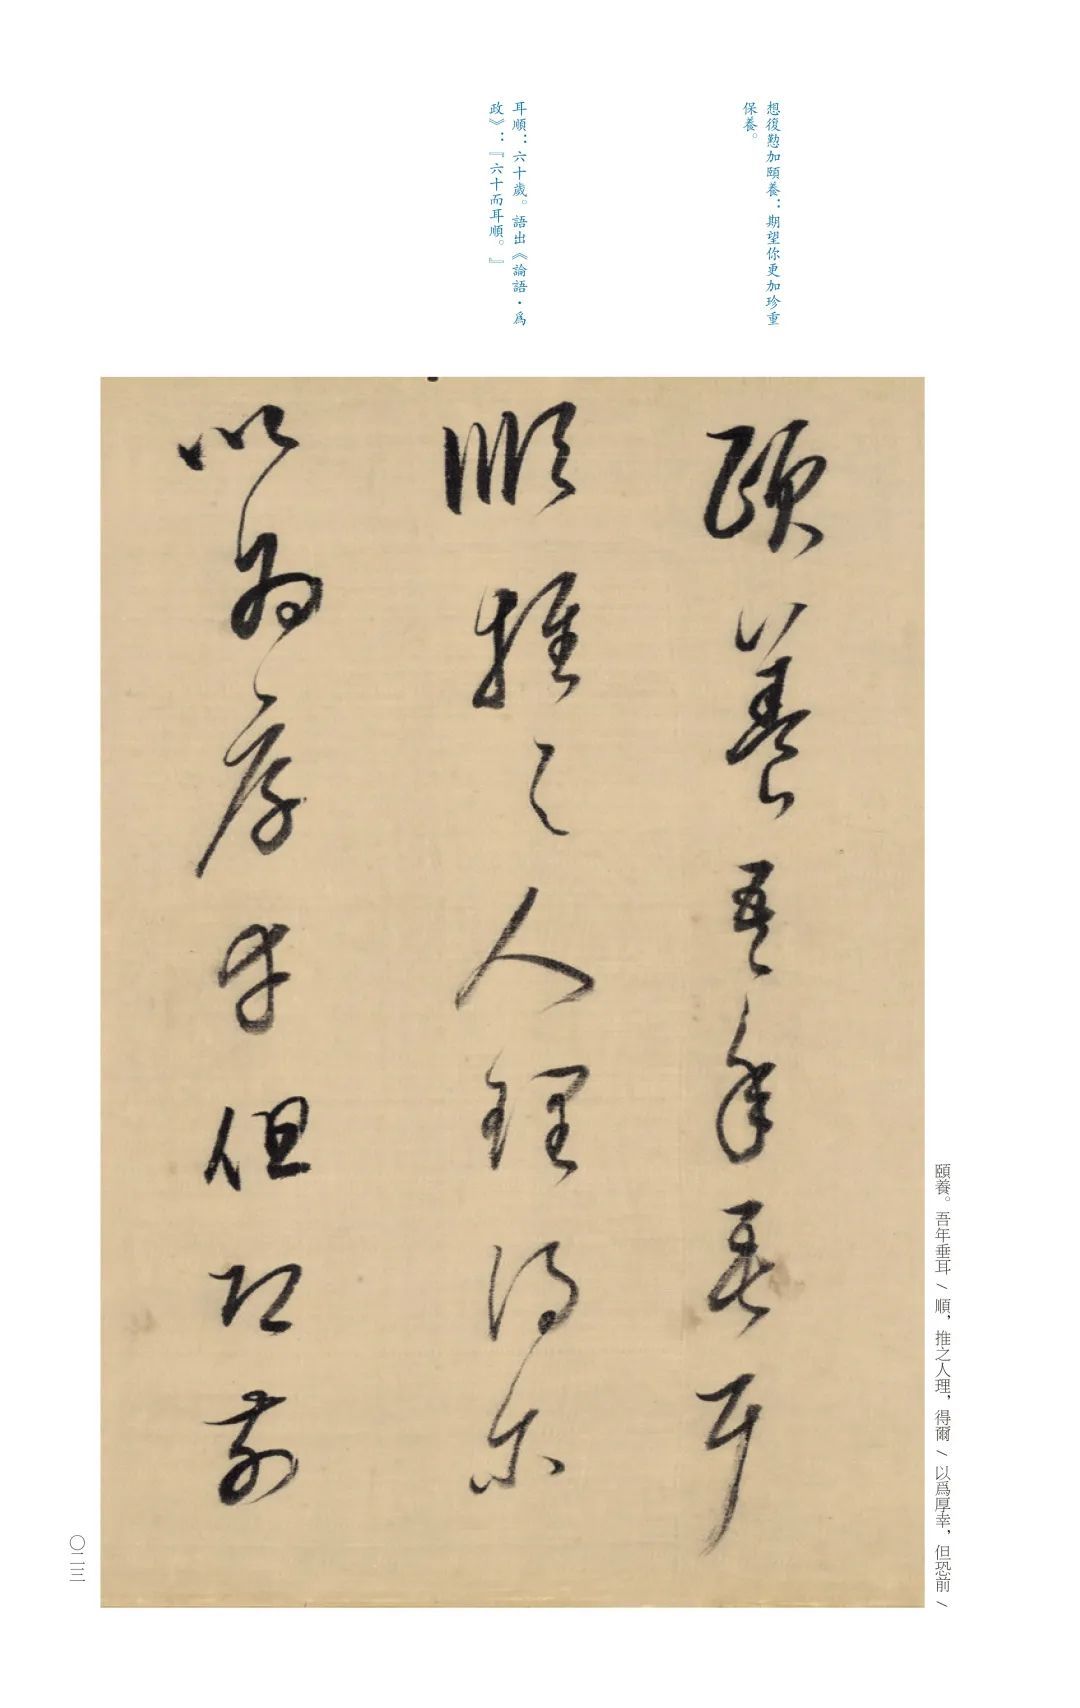 想復懃加頤養：期望你更加珍重
保養。
耳順：六十歲。語出《論語·爲
政》：『六十而耳順。』
頤養吾年垂耳
順推之人理得爾
以爲厚幸但恐前
頤養。吾年垂耳／順，推之人理，得爾／以爲厚幸，但恐前／
〇二三